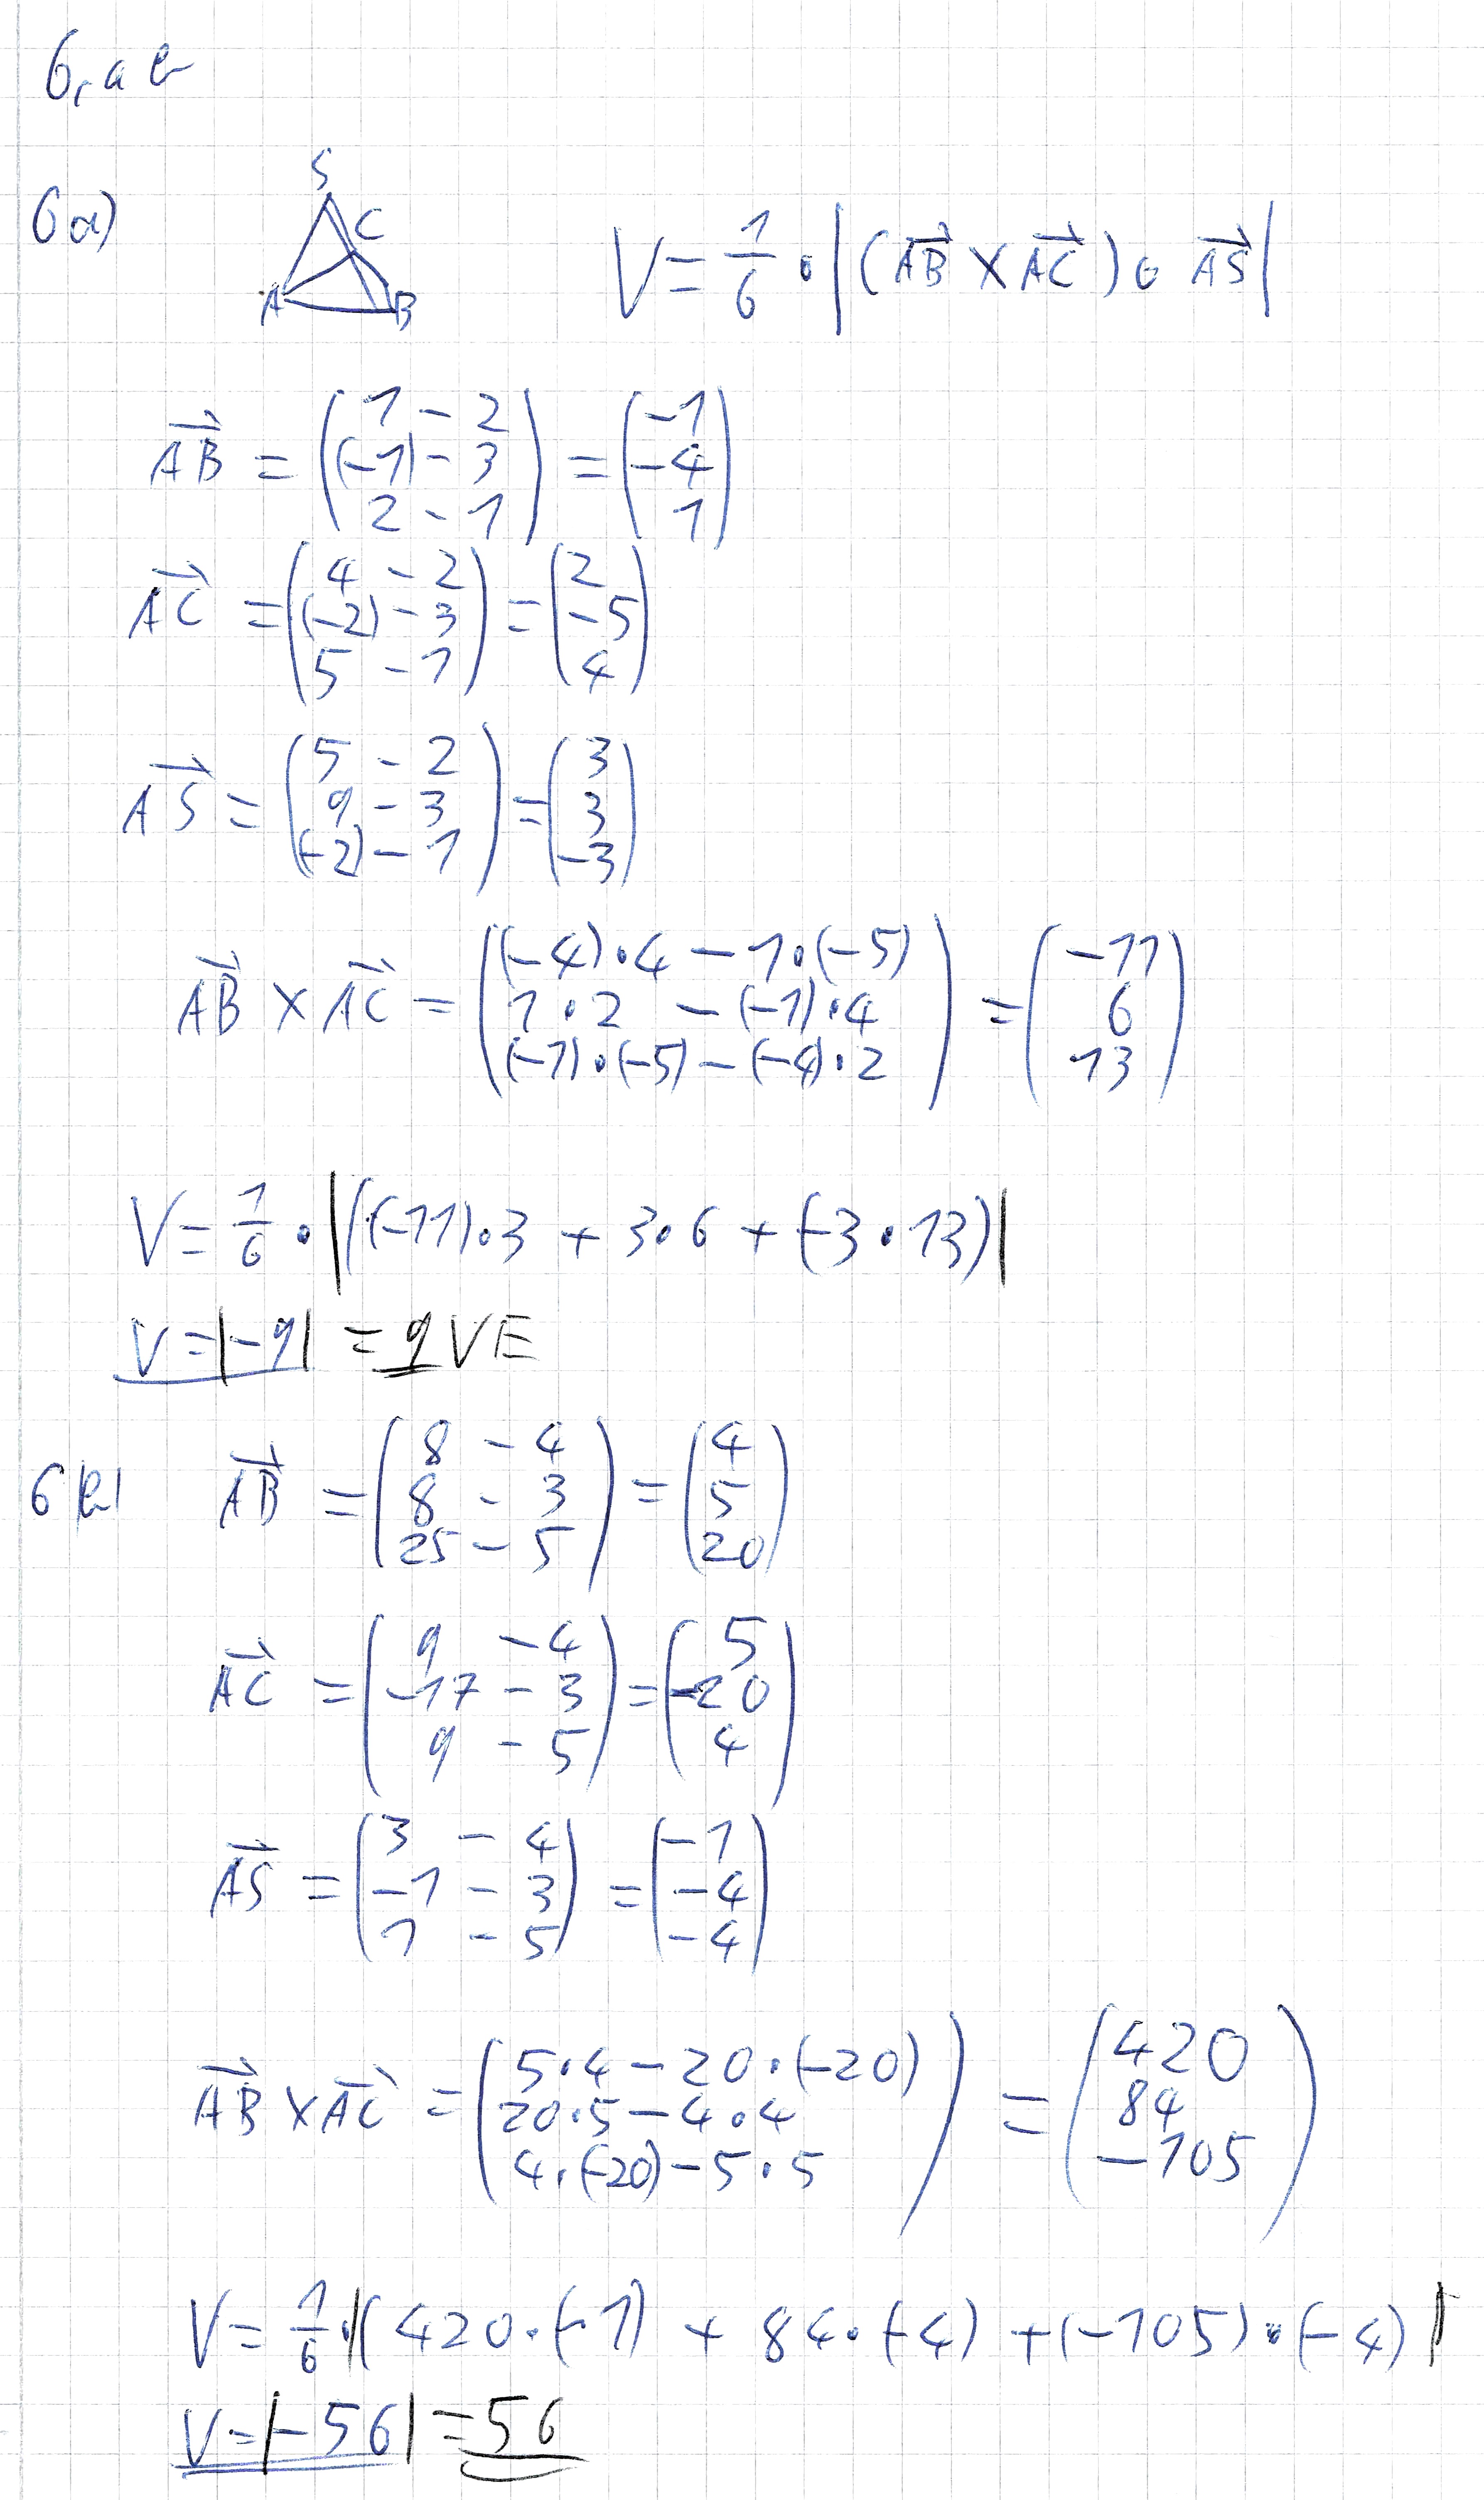 6, a b
6a)
S
C
A B
V = 1/6 · |(AB × AC) ∘ AS|
AB = (1 - 2
(-1) - 3
2 - 1) = (-1
-4
1)
AC = (4 - 2
(-2) - 3
5 - 1) = (2
-5
4)
AS = (5 - 2
9 - 3
(-2) - 1) = (3
3
-3)
AB × AC = ((-4)·4 - 1·(-5)
1·2 - (-1)·4
(-1)·(-5) - (-4)·2) = (-11
6
13)
V = 1/6 · |((-11)·3 + 3·6 + (-3·13)|
V = |-9| = 9 VE
6b) AB = (8 - 4
8 - 3
25 - 5) = (4
5
20)
AC = (9 - 4
-17 - 3
9 - 5) = (5
-20
4)
AS = (3 - 4
-1 - 3
1 - 5) = (-1
-4
-4)
AB × AC = (5·4 - 20·(-20)
20·5 - 4·4
4·(-20) - 5·5) = (420
84
-105)
V = 1/6 · |(420·(-1) + 84·(-4) + (-105)·(-4)|
V = |-56| = 56